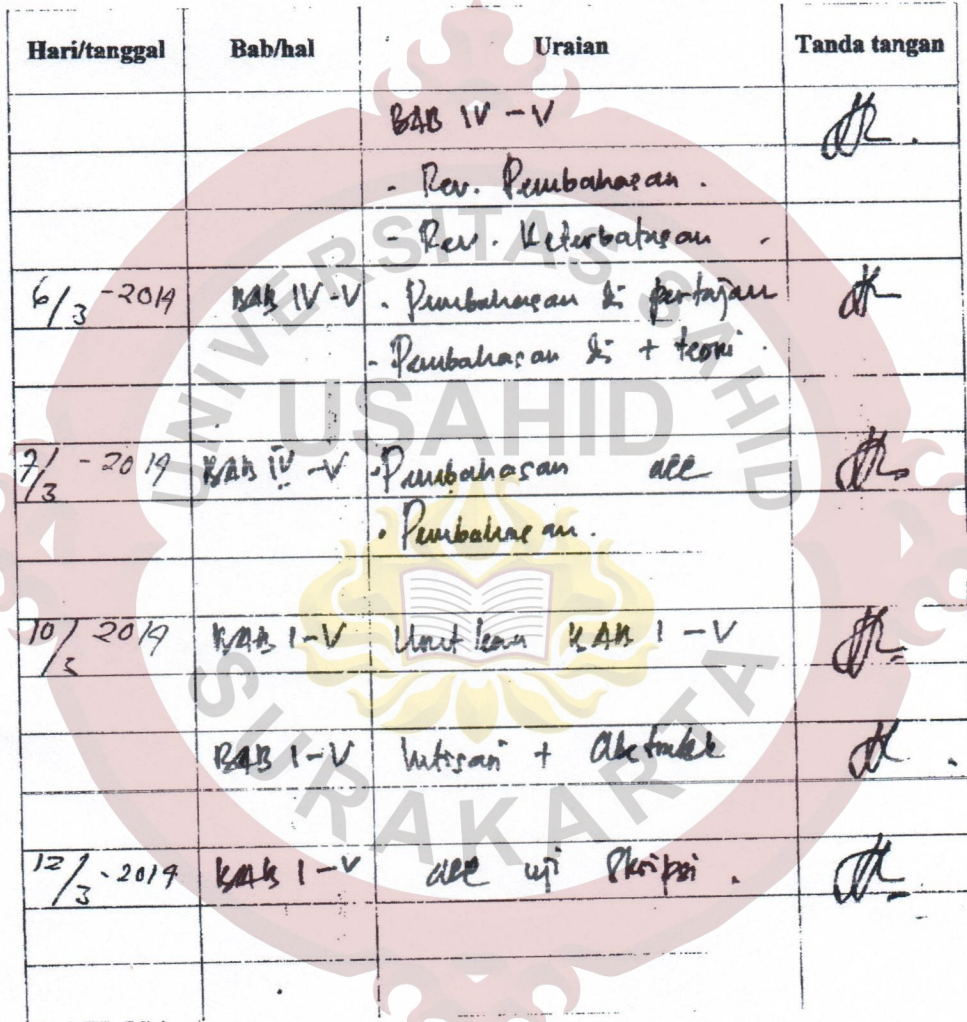 Hari/tanggal Bab/hal Uraian Tanda tangan
BAB IV - V
- Rev. Pembahasan.
- Rev. Keterbatasan.
6/3 - 2014 BAB IV-V - Pembahasan di pertajam
- Pembahasan di + teori.
7/3 - 2014 BAB IV - V - Pembahasan acc
- Pembahasan.
10/3 2014 BAB I - V BAB I - V
BAB I - V Intisari + Abstrak
12/3 - 2014 BAB I - V acc uji Skripsi.
UNIVERSITAS SAHID
USAHID
SURAKARTA